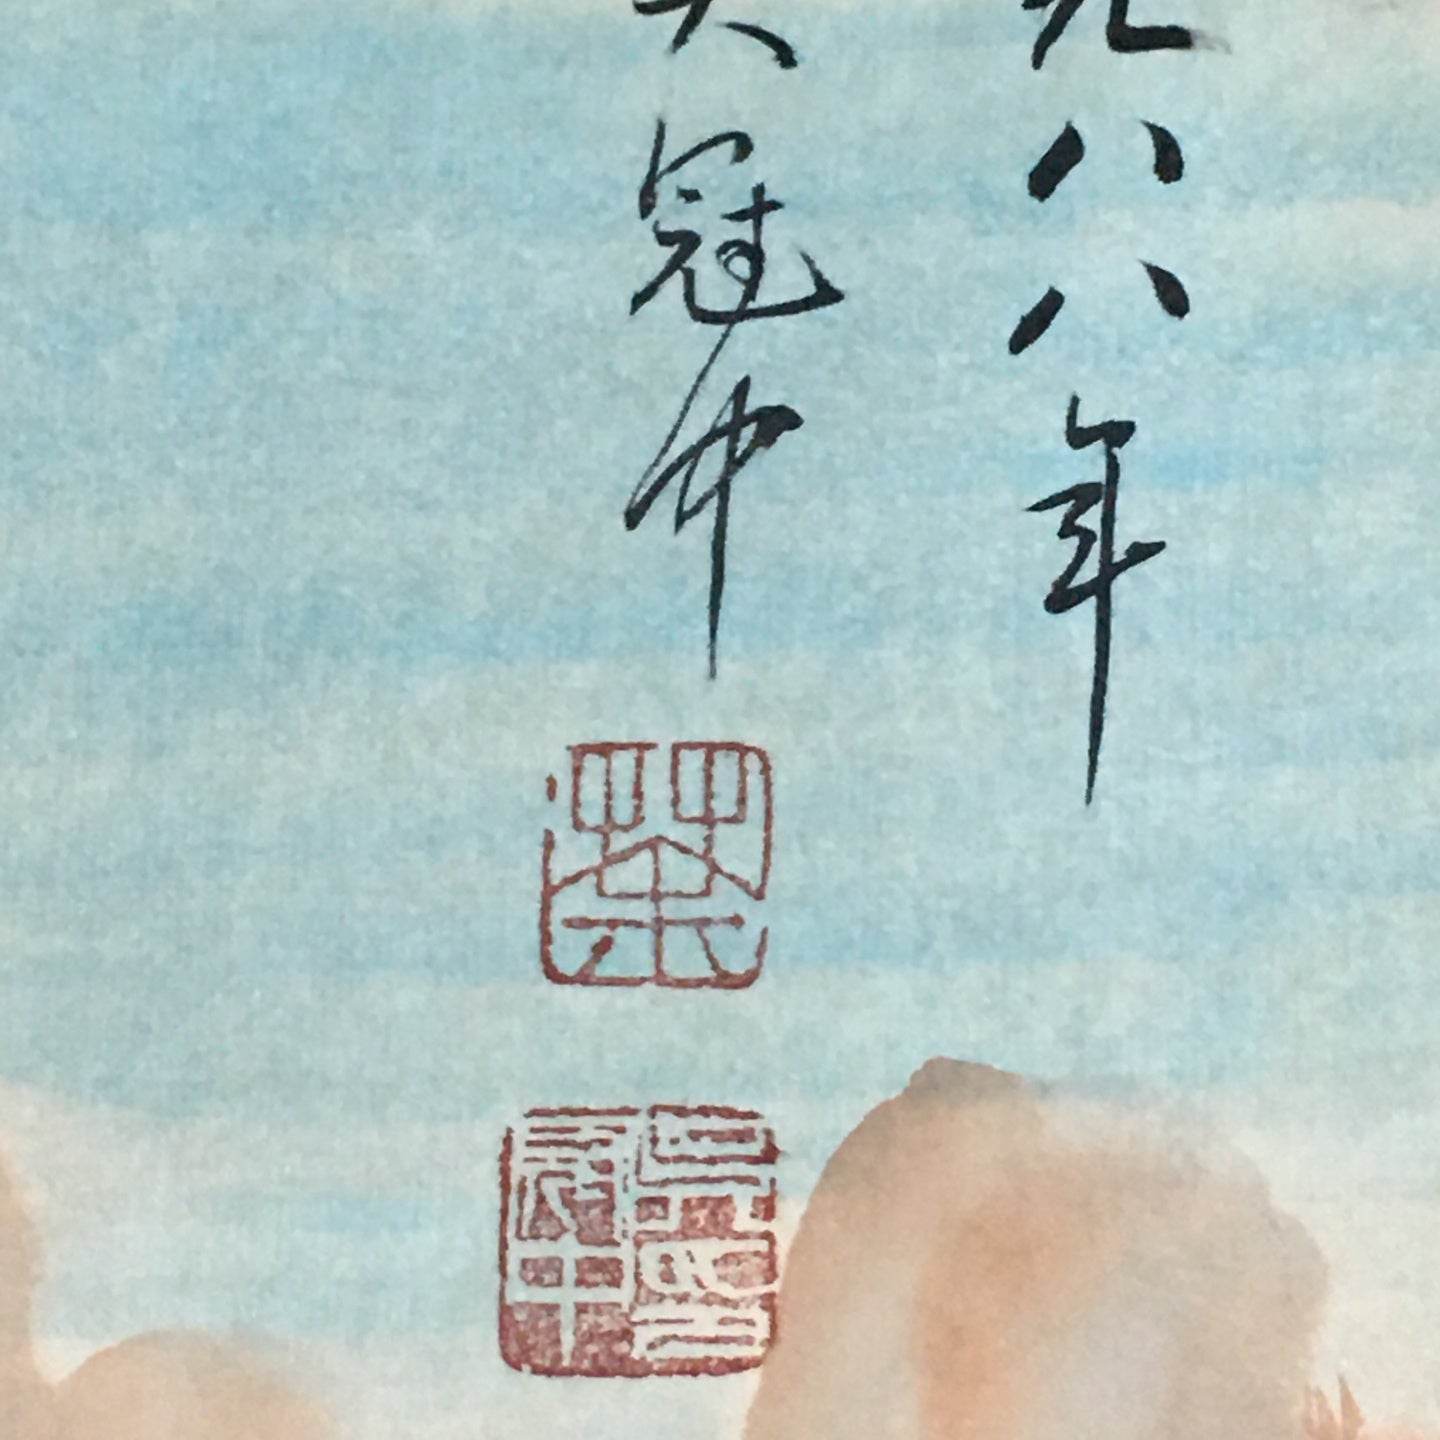 九八八年
吴冠中
荼
吴印
冠中